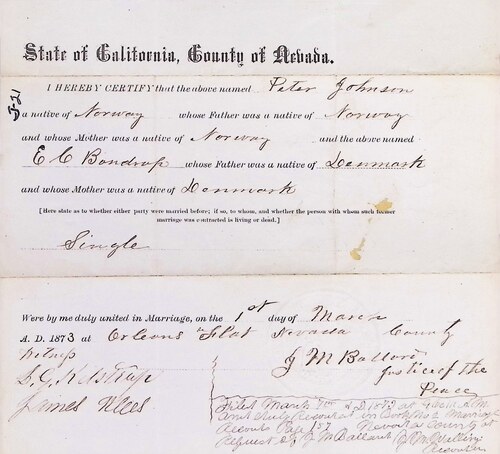 State of California, County of Nevada.
I HEREBY CERTIFY that the above named Peter Johnson
a native of Norway whose Father was a native of Norway
and whose Mother was a native of Norway and the above named
E C Bondrup whose Father was a native of Denmark
and whose Mother was a native of Denmark
[Here state as to whether either party were married before; if so, to whom, and whether the person with whom such former
marriage was contracted is living or dead.]
Single
Were by me duly united in Marriage, on the 1st day of March
A. D. 1873 at Orleans Flat Nevada County
Witness J M Ballord
Justice of the
Peace
James
Filed March A.D. 1873 at
and duly Recorded in Book No Marriage
Records Page 157 Nevada County at
Request of J M Ballard
Recorder